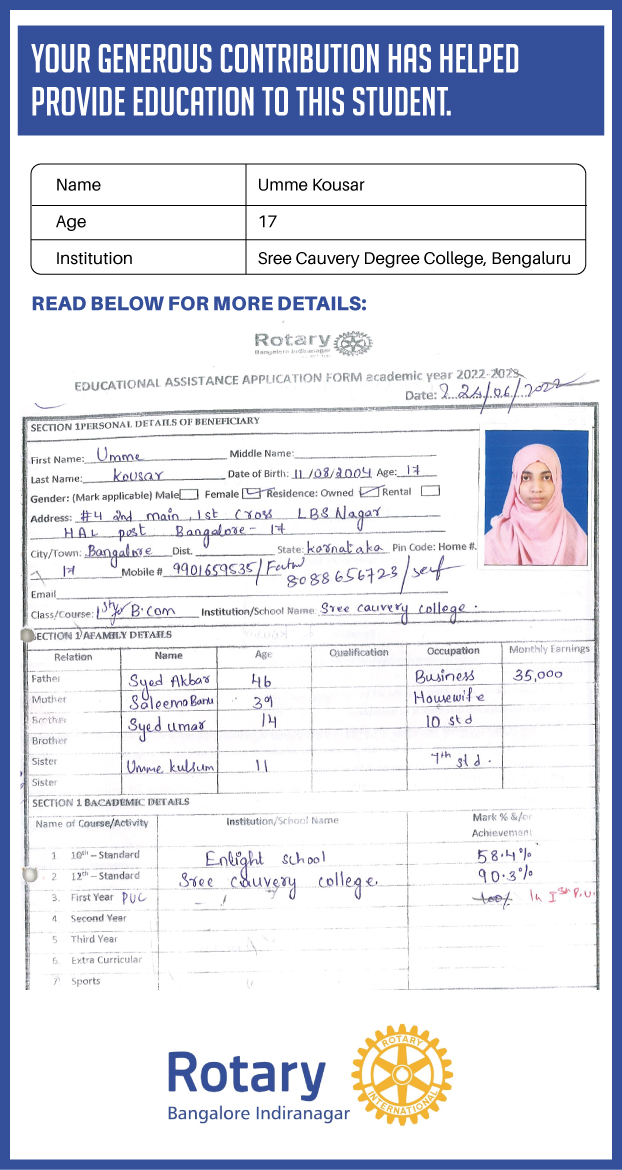 YOUR GENEROUS CONTRIBUTION HAS HELPED
PROVIDE EDUCATION TO THIS STUDENT.
Name Umme Kousar
Age 17
Institution Sree Cauvery Degree College, Bengaluru
READ BELOW FOR MORE DETAILS:
Rotary
Bangalore Indiranagar
EDUCATIONAL ASSISTANCE APPLICATION FORM academic year 2022-2023
Date: 24/06/2022
SECTION 1PERSONAL DETAILS OF BENEFICIARY
First Name: Umme Middle Name:
Last Name: kousar Date of Birth: 11/08/2004 Age: 17
Gender: (Mark applicable) Male Female Residence: Owned Rental
Address: #4 2nd main, 1st Cross LBS Nagar
HAL post Bangalore - 17
City/Town: Bangalore Dist. State: karnataka Pin Code: Home #.
17 Mobile # 9901659535/
8088656723/self
Email
Class/Course: 1st yr B.com Institution/School Name Sree cauvery college.
SECTION 1 AFAMILY DETAILS
Relation Name Age Qualification Occupation Monthly Earnings
Father Syed Akbar 46 Business 35,000
Muther Saleema Banu 39 Housewife
Brother Syed umar 14 10 std
Brother
Sister Umme kulsum 11 7th std.
Sister
SECTION 1 BACADEMIC DETAILS
Name of Course/Activity Institution/School Name Mark % &/or
Achievement
1 10th – Standard Enlight school 58.4%
2 12th – Standard Sree cauvery college. 90.3%
3. First Year PUC 100% In Ist P.U.
4 Second Year
5 Third Year
6. Extra Curricular
7 Sports
Rotary
Bangalore Indiranagar
ROTARY
INTERNATIONAL